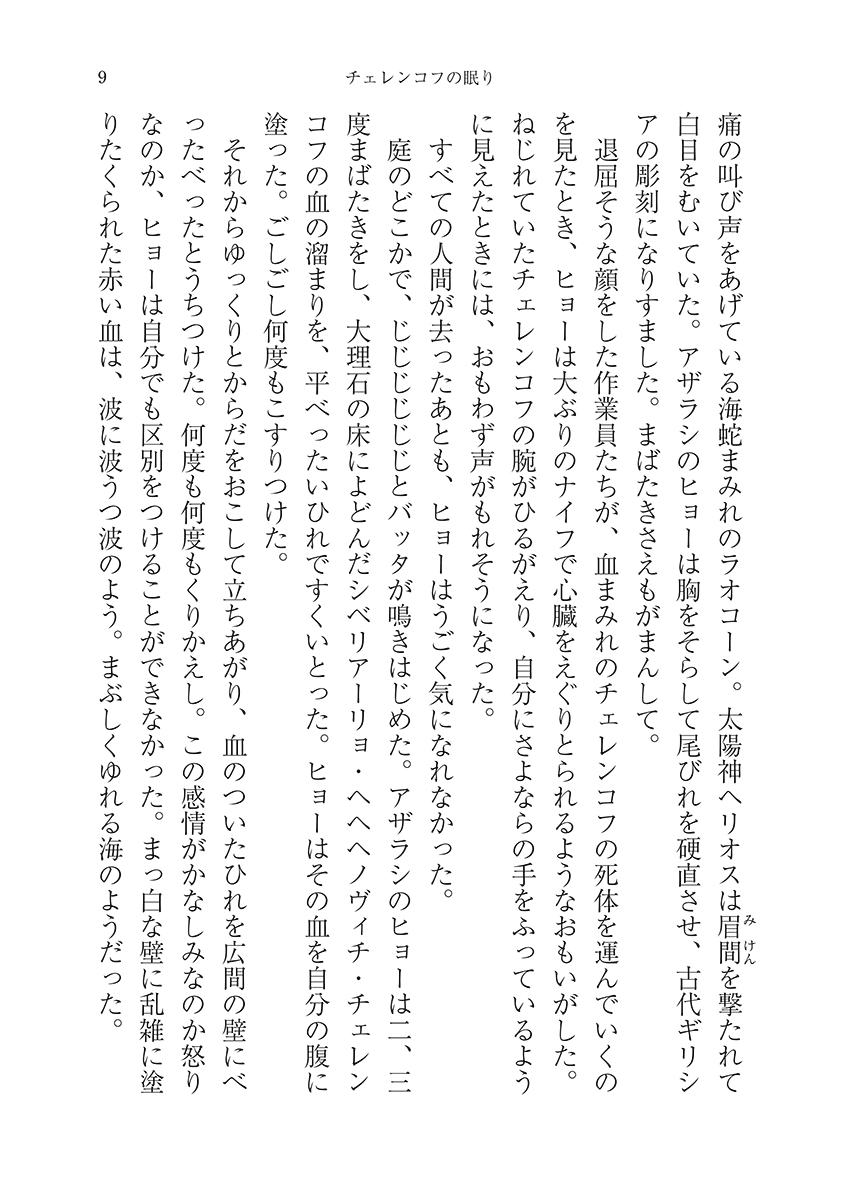 9
チェレンコフの眠り
痛の叫び声をあげている海蛇まみれのラオコーン。太陽神ヘリオスは眉間を撃たれて
みけん
白目をむいていた。アザラシのヒョーは胸をそらして尾びれを硬直させ、古代ギリシ
アの彫刻になりすました。まばたきさえもがまんして。
退屈そうな顔をした作業員たちが、血まみれのチェレンコフの死体を運んでいくの
を見たとき、ヒョーは大ぶりのナイフで心臓をえぐりとられるようなおもいがした。
ねじれていたチェレンコフの腕がひるがえり、自分にさよならの手をふっているよう
に見えたときには、おもわず声がもれそうになった。
すべての人間が去ったあとも、ヒョーはうごく気になれなかった。
庭のどこかで、じじじじじじとバッタが鳴きはじめた。アザラシのヒョーは二、三
度まばたきをし、大理石の床によどんだシベリアーリョ・ヘヘヘノヴィチ・チェレン
コフの血の溜まりを、平べったいひれですくいとった。ヒョーはその血を自分の腹に
塗った。ごしごし何度もこすりつけた。
それからゆっくりとからだをおこして立ちあがり、血のついたひれを広間の壁にべ
ったべったとうちつけた。何度も何度もくりかえし。この感情がかなしみなのか怒り
なのか、ヒョーは自分でも区別をつけることができなかった。まっ白な壁に乱雑に塗
りたくられた赤い血は、波に波うつ波のよう。まぶしくゆれる海のようだった。